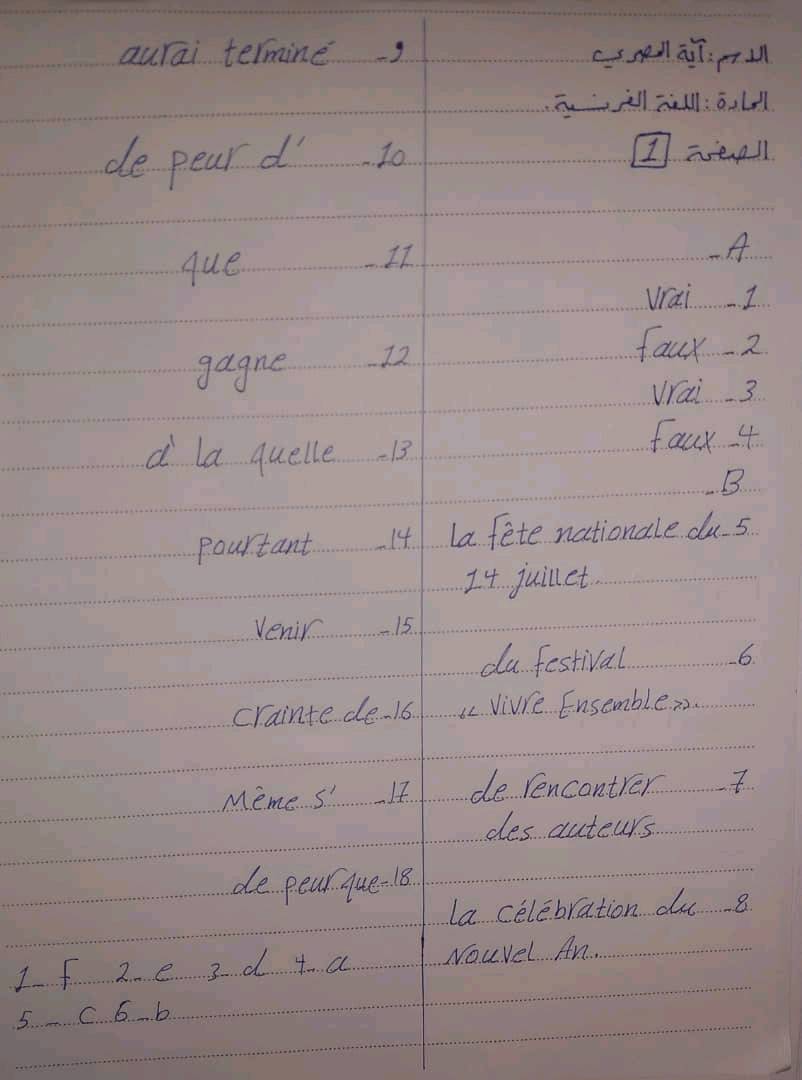 الاسم: آية المصري
المادة: اللغة الفرنسية.
الصفحة 1
A -
1 - vrai
2 - faux
3 - vrai
4 - faux
B -
5 - la fête nationale du
14 juillet.
6 - du festival
« Vivre Ensemble ».
7 - de rencontrer
des auteurs
8 - la célébration du
Nouvel An.
9 - aurai terminé
10 - de peur d'
11 - que
12 - gagne
13 - à la quelle
14 - pourtant
15 - Venir
16 - crainte de
17 - Même s'
18 - de peur que
1 - f 2 - e 3 - d 4 - a
5 - c 6 - b